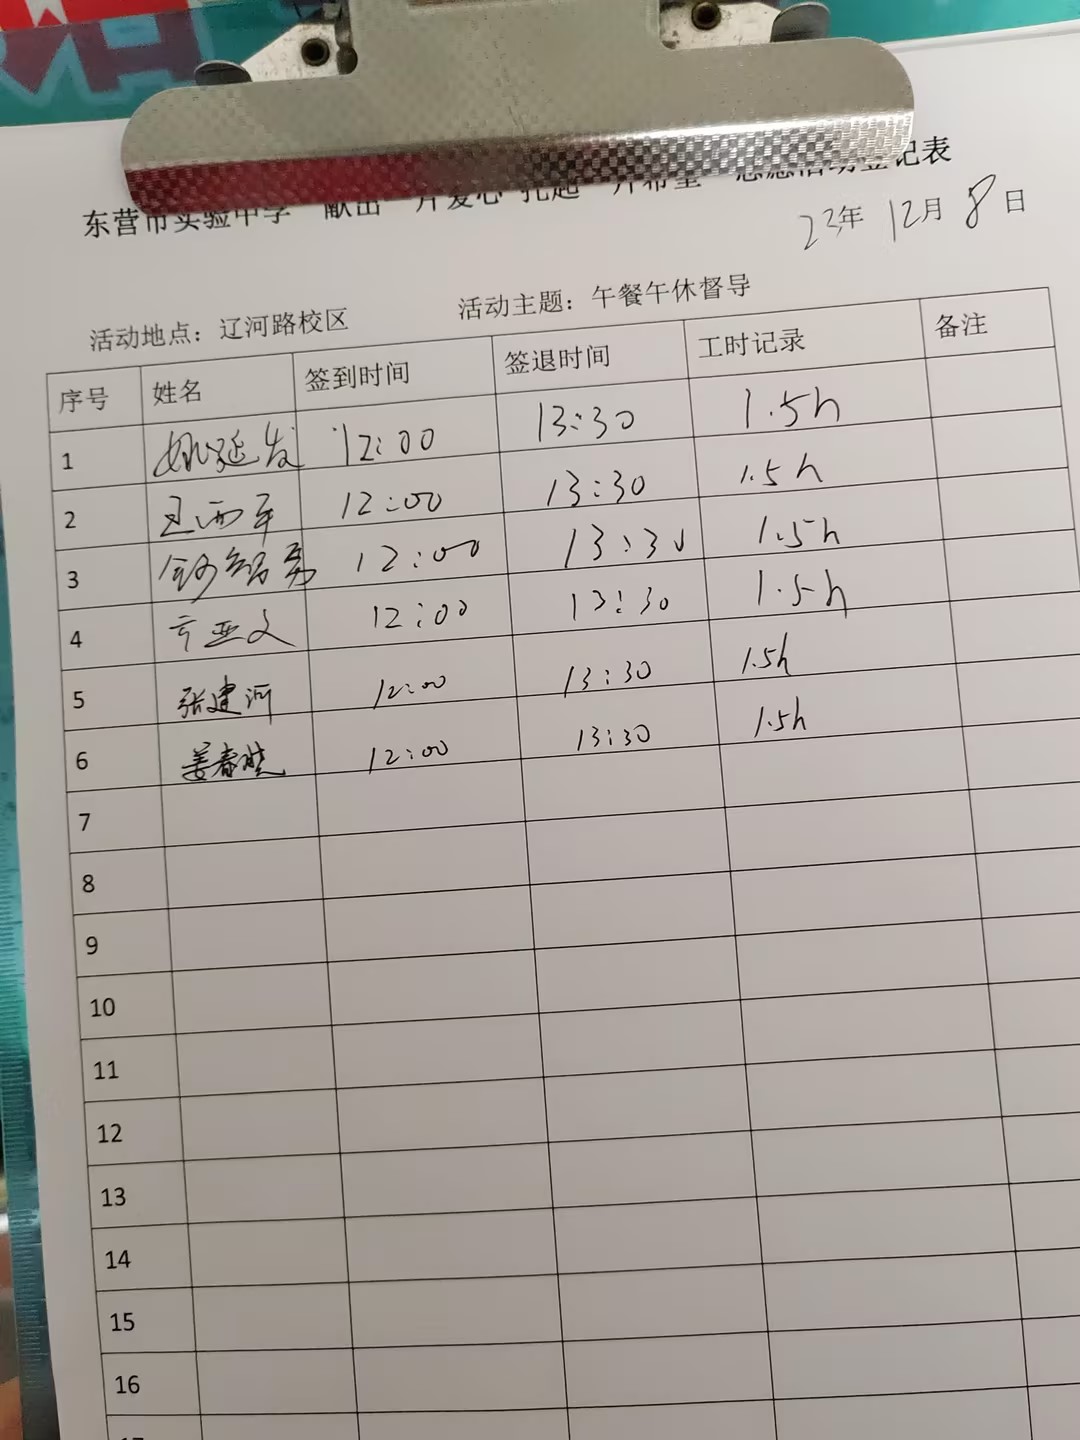 东营市实验中学 献出一片爱心 托起一片希望 志愿活动登记表
23年 12月 8日
活动地点：辽河路校区 活动主题：午餐午休督导
序号 姓名 签到时间 签退时间 工时记录 备注
1 姚延发 12:00 13:30 1.5h
2 12:00 13:30 1.5h
3 12:00 13:30 1.5h
4 12:00 13:30 1.5h
5 张建河 12:00 13:30 1.5h
6 姜春晓 12:00 13:30 1.5h
7
8
9
10
11
12
13
14
15
16